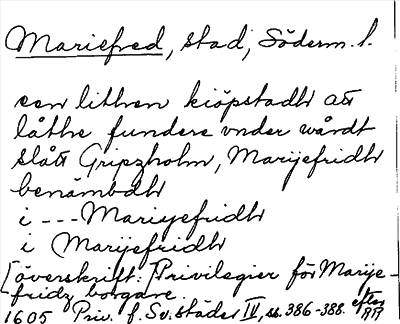 Mariefred, stad, Söderm. l.
een lithen kiöpstadh att
låthe fundere vnder wårdt
slått Gripzholm, Marijefridh
benämbdh
i --- Mariyefridh
i Marijefridh
[överskrift:] Privilegier för Marije-
fridz borgare.
1605 Priv. f. Sv. städer IV, ss. 386-388. efter